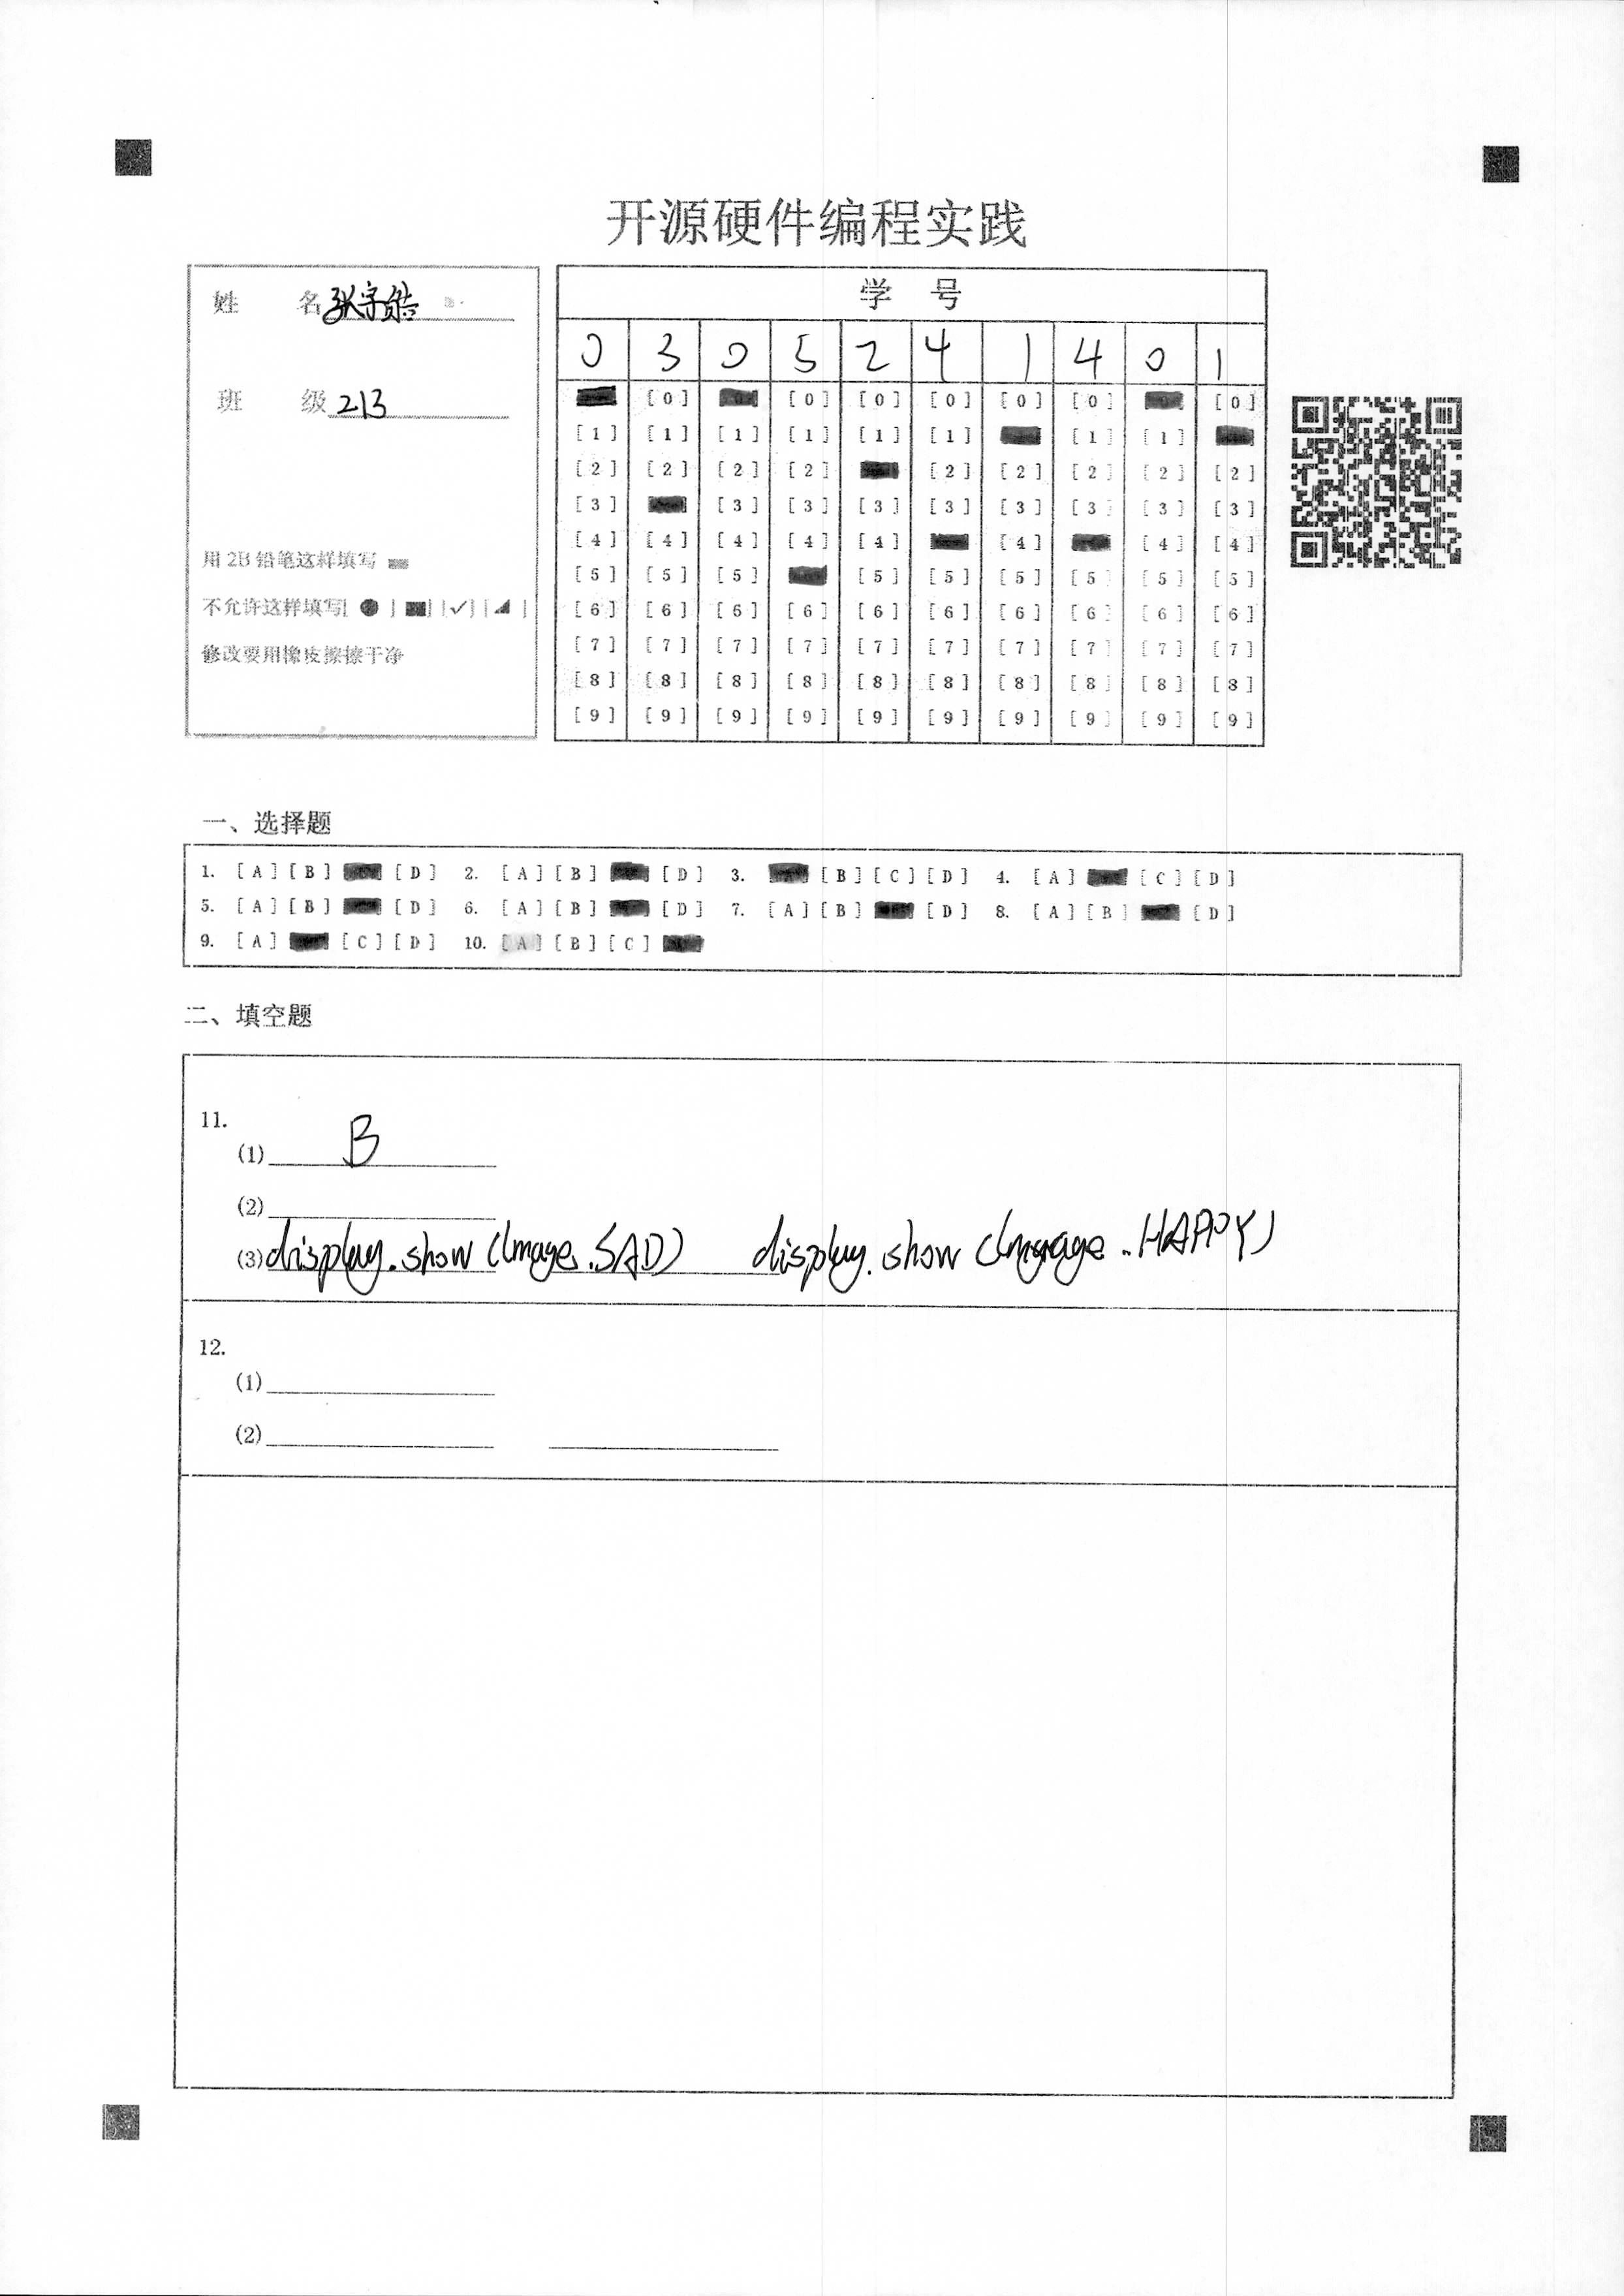 开源硬件编程实践
姓 名 张宇皓
班 级 213
用 2B 铅笔这样填写
不允许这样填写[ ● ] [■] [✓] [◢ ]
修改要用橡皮擦擦干净
学 号
0 3 0 5 2 4 1 4 0 1
[0] [0] [0] [0] [0] [0] [0]
[1] [1] [1] [1] [1] [1] [1] [1]
[2] [2] [2] [2] [2] [2] [2] [2] [2]
[3] [3] [3] [3] [3] [3] [3] [3] [3]
[4] [4] [4] [4] [4] [4] [4] [4]
[5] [5] [5] [5] [5] [5] [5] [5] [5]
[6] [6] [6] [6] [6] [6] [6] [6] [6] [6]
[7] [7] [7] [7] [7] [7] [7] [7] [7] [7]
[8] [8] [8] [8] [8] [8] [8] [8] [8] [8]
[9] [9] [9] [9] [9] [9] [9] [9] [9] [9]
一、选择题
1. [A] [B] [D] 2. [A] [B] [D] 3. [B] [C] [D] 4. [A] [C] [D]
5. [A] [B] [D] 6. [A] [B] [D] 7. [A] [B] [D] 8. [A] [B] [D]
9. [A] [C] [D] 10. [A] [B] [C]
二、填空题
11.
(1) B
(2)
(3) display.show(Image.SAD) display.show(Imgage..HAPPY)
12.
(1)
(2)